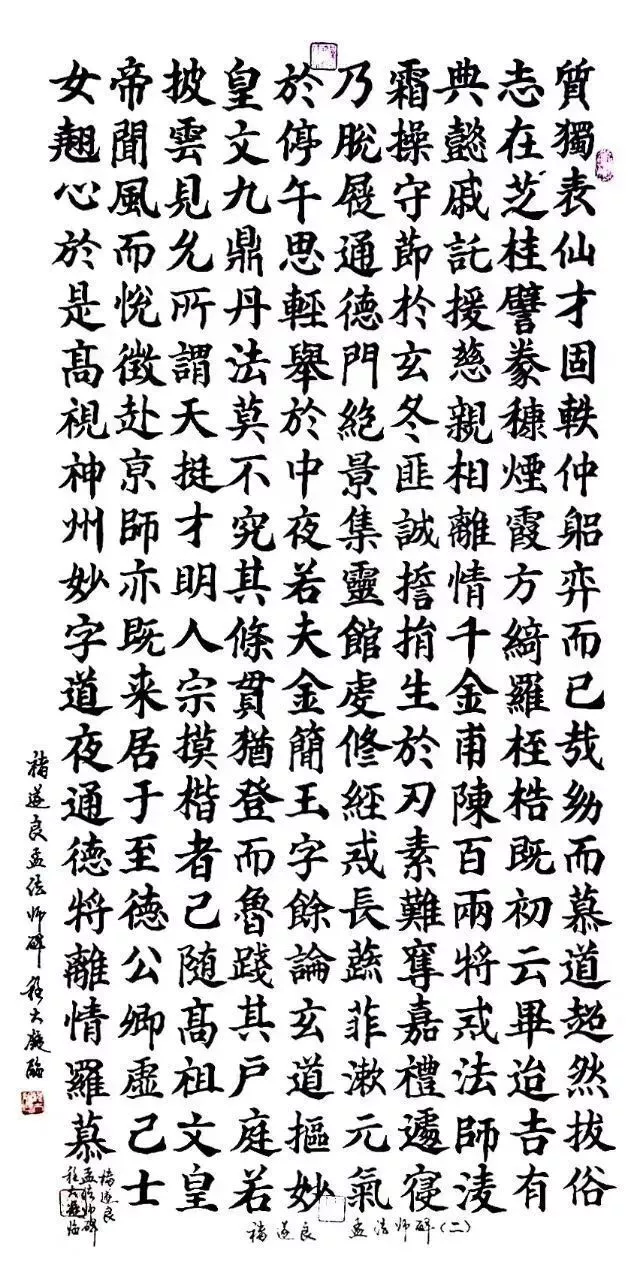 質獨表仙才固軼仲躳弈而已哉幼而慕道超然拔俗
志在芝桂譬豢穅煙霞方綺羅桎梏既初云畢迨吉有
典懿戚託援慈親相離情千金甫陳百兩將戒法師凌
霜操守節於玄冬匪誠捐生於刃素難奪嘉禮遽寢
乃脫屣通德門絕景集靈館虔修經戒長蔬菲漱元氣
於停午思輕舉於中夜若夫金簡玉字餘論玄道樞妙
皇文九鼎丹法莫不究其條貫猶登而魯踐其戶庭若
披雲見允所謂天挺才明人宗摸楷者己随高祖文皇
帝聞風而悅徵赴京師亦既来居于至德公卿虛己士
女翹心於是高視神州妙字道夜通德將離情羅慕
褚遂良孟法师碑 程大凝臨
褚遂良
孟法师碑
程大凝临
褚遂良 孟法师碑(二)